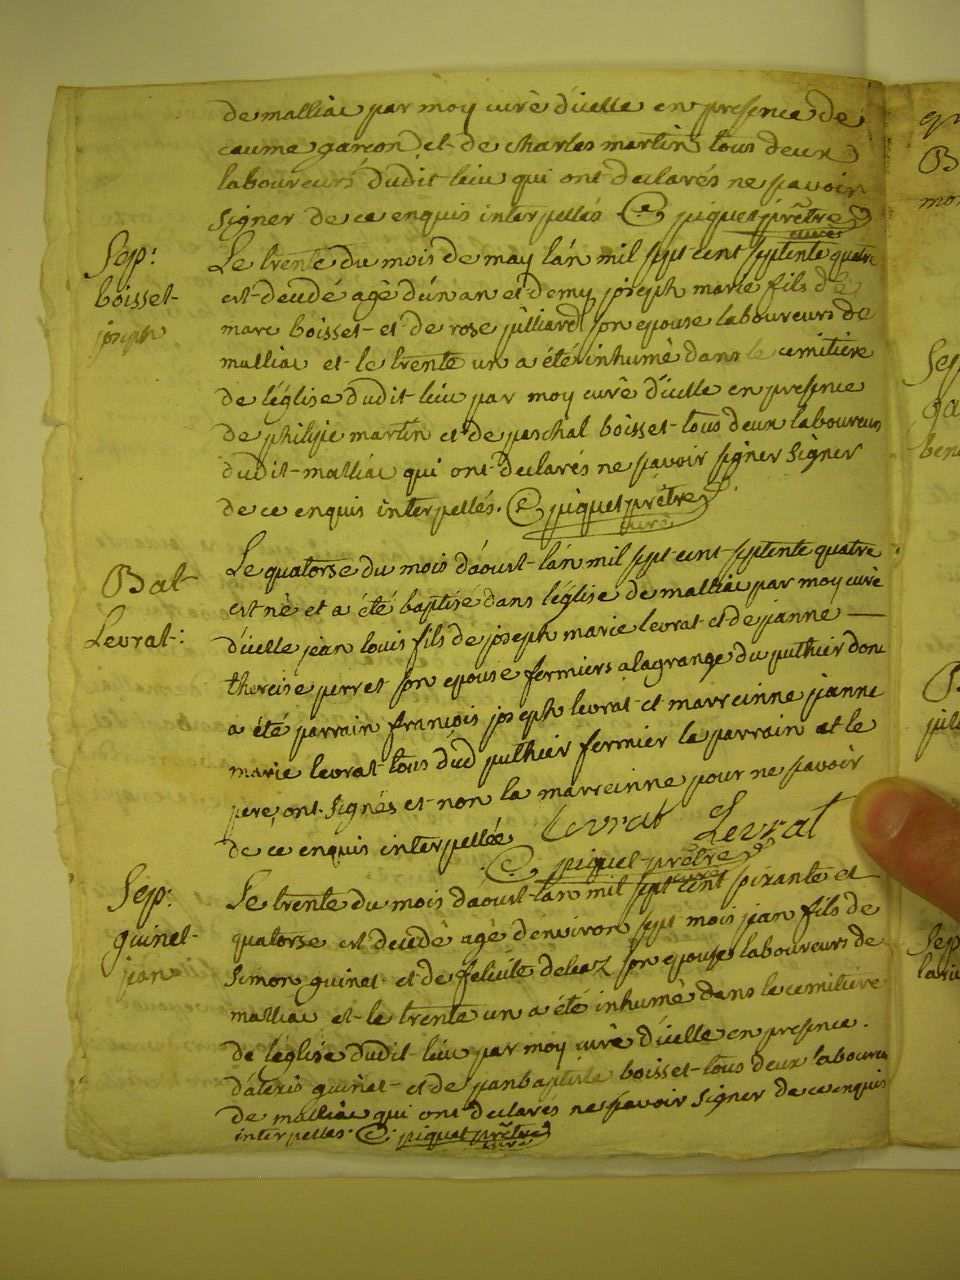 de malliac par moy curè d'icelle en presence de
caume garcon et de charles martin tous deux
laboureurs dudit lieu qui ont declarés ne sçavoir
signer de ce enquis interpellés piquet prêtre
curé
Sep:
boisset
joseph
Le trente du mois de may l'an mil sept cent septente quatre
est decedé agè d'un an et demy joseph marie fils de
marc boisset et de rose julliard son epouse laboureurs de
malliac et le trente un a été inhumè dans le cemitiere
de l'église dudit lieu par moy curè d'icelle en presence
de philipe martin et de paschal boisset tous deux laboureurs
dudit malliac qui ont declarés ne sçavoir signer signer
de ce enquis interpellés. piquet prêtre
curé
Bat
Levrat:
Le quatorse du mois d'aoust l'an mil sept cent septente quatre
est nè et a été baptisé dans l'église de malliac par moy curè
d'icelle jean louis fils de joseph marie levrat et de jeanne
thereise perret son epouse fermiers a lagrange du puthier dont
a été parrain françois joseph levrat et marreinne jeanne
marie levrat tous dud puthier fermier le parrain et le
pere, ont signés et non la marreinne pour ne sçavoir
de ce enquis interpellée levrat Levrat
piquet prêtre
curé
Sep:
guinet
jean
Le trente du mois d'aoust l'an mil sept cent soixante et
quatorse est decedè agè d'environ sept mois jean fils de
Simon guinet et de felicite deleaz son epouse laboureurs de
malliac et le trente un a été inhumè dans le cemitiere
de l'église dudit lieu par moy curè d'icelle en presence.
d'alexis guinet et de jeanbaptiste boisset tous deux laboureurs
de malliac qui ont declarés ne sçavoir signer de ce enquis
interpellés. piquet prêtre
curé